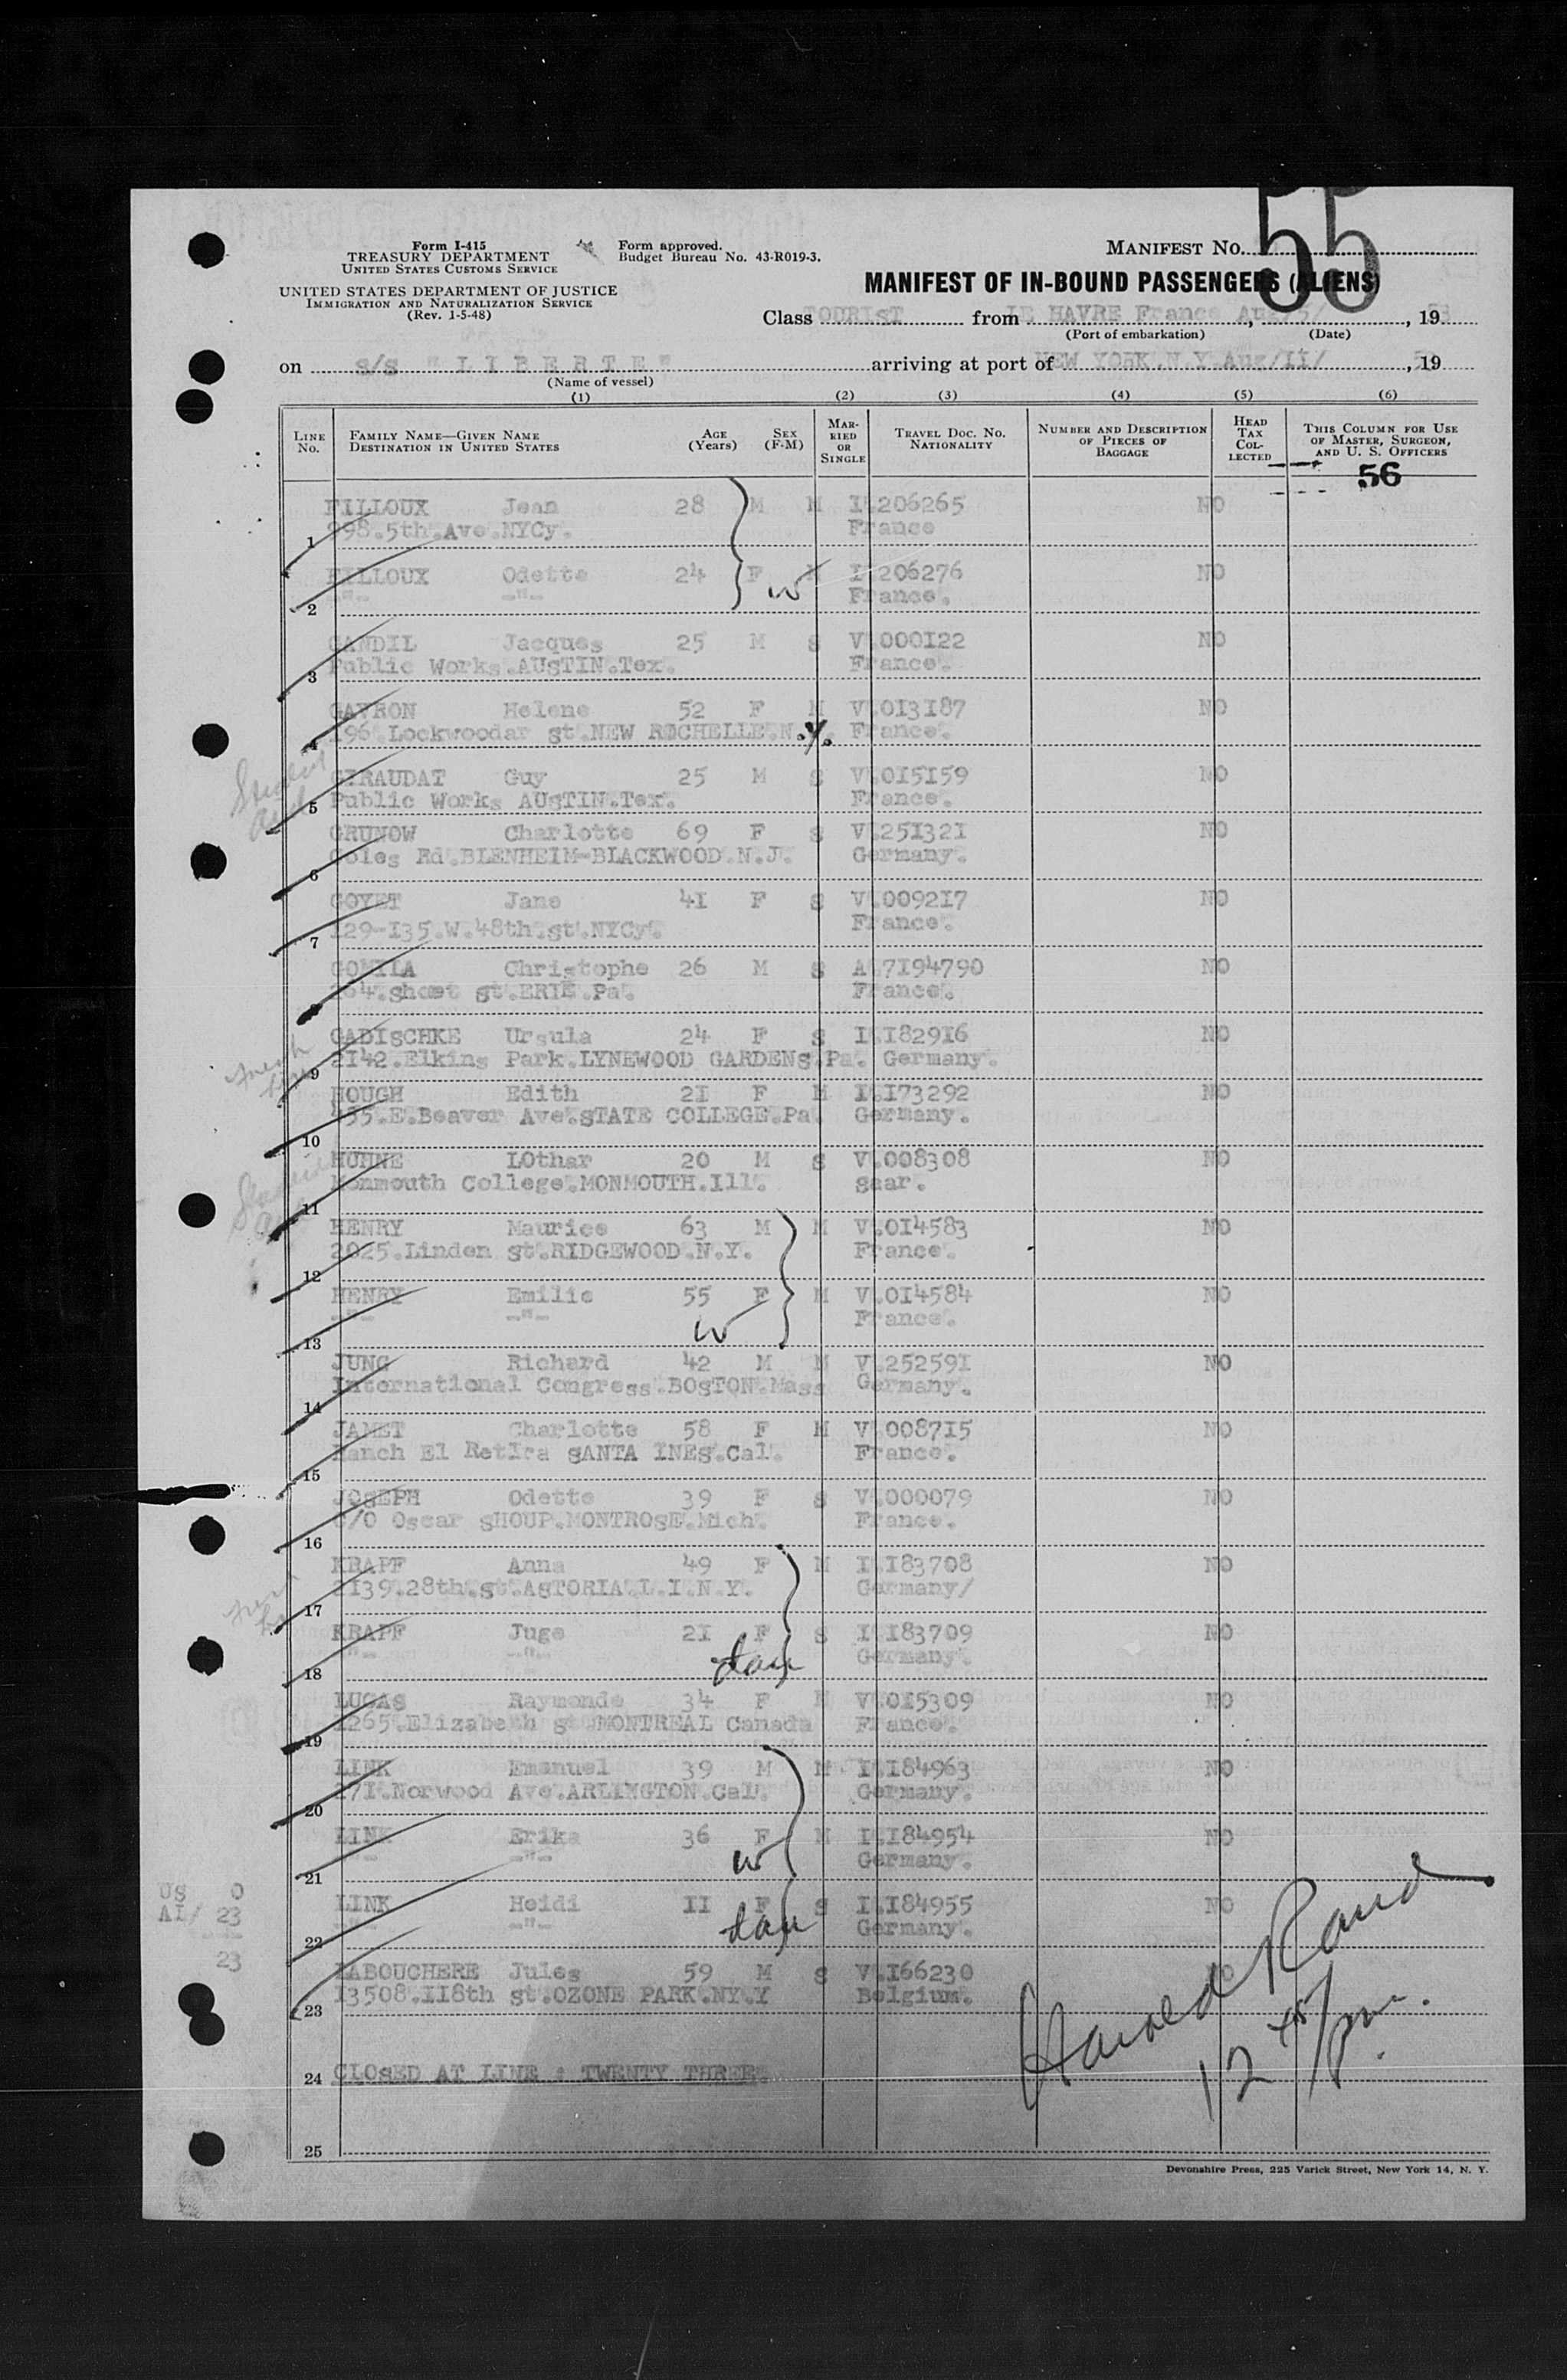 Form I-415
TREASURY DEPARTMENT
UNITED STATES CUSTOMS SERVICE
UNITED STATES DEPARTMENT OF JUSTICE
IMMIGRATION AND NATURALIZATION SERVICE
(Rev. 1-5-48)
Form approved.
Budget Bureau No. 43-R019-3.
MANIFEST NO. 55
MANIFEST OF IN-BOUND PASSENGERS (ALIENS)
Class TOURIST from LE HAVRE France Aug/5/, 1953
(Port of embarkation) (Date)
on s/s "LIBERTE" arriving at port of NEW YORK.N.Y.Aug/II/, 19
(Name of vessel)
(1) (2) (3) (4) (5) (6)
LINE NO. FAMILY NAME—GIVEN NAME DESTINATION IN UNITED STATES AGE (Years) SEX (F-M) MARRIED OR SINGLE TRAVEL DOC. NO. NATIONALITY NUMBER AND DESCRIPTION OF PIECES OF BAGGAGE HEAD TAX COLLECTED THIS COLUMN FOR USE OF MASTER, SURGEON, AND U. S. OFFICERS
56
FILLOUX Jean 28 M M I.206265 NO
1 998.5th.Ave.NYCy. France
FILLOUX Odette 24 F w M I.206276 NO
2 -"- -"- France.
GANDIL Jacques 25 M S V.000I22 NO
3 Public Works.AUsTIN.Tex. France.
GAVRON Helene 52 F M V.0I3I87 NO
4 196.Lockwoodar st.NEW ROCHELLE.N.Y. France.
Student
GIRAUDAT Guy 25 M S V.0I5I59 NO
5 Public Works AUsTIN.Tex. France.
GRUNOW Charlotte 69 F S V.25I32I NO
6 Coles Rd.BLENHEIM-BLACKWOOD.N.J. Germany.
GOYET Jane 4I F S V.0092I7 NO
7 I29-I35.W.48th.st.NYCy. France.
GOMILA Christophe 26 M S A.7I94790 NO
8 st.ERIE.Pa. France.
GADIsCHKE Ursula 24 F S I.I829I6 NO
9 2I42.Elkins Park.LYNEWOOD GARDENs.Pa. Germany.
HOUGH Edith 2I F M I.I73292 NO
10 455.E.Beaver Ave.sTATE COLLEGE.Pa. Germany.
HUHNE LOthar 20 M S V.008308 NO
11 Monmouth College.MONMOUTH.Ill. saar.
HENRY Maurice 63 M M V.0I4583 NO
12 2025.Linden st.RIDGEWOOD.N.Y. France.
HENRY Emilie 55 F w M V.0I4584 NO
13 -"- -"- France.
JUNG Richard 42 M M V.25259I NO
14 International Congress.BOsTON.Mass Germany.
JAMET Charlotte 58 F M V.0087I5 NO
15 Ranch El RetIra sANTA INEs.Cal. France.
JOsEPH Odette 39 F S V.000079 NO
16 C/O Oscar sHOUP.MONTROsE.Mich. France.
KRAPF Anna 49 F M I.I83708 NO
17 2I39.28th.st.AsTORIA.L.I.N.Y. Germany/
KRAPF Juge 2I F dau S I.I83709 NO
18 -"- -"- Germany.
LUCAS Raymonde 34 F M V.0I5309 NO
19 I265.Elizabeth st.MONTREAL Canada France.
LINK Emanuel 39 M M I.I84963 NO
20 I7I.Norwood Ave.ARLINGTON.Cal. Germany.
LINK Erika 36 F w M I.I84954 NO
21 -"- -"- Germany.
US 0
AL/ 23
23
LINK Heidi II F dau S I.I84955 NO
22 -"- -"- Germany.
LABOUCHERE Jules 59 M S V.I66230 NO
23 I3508.II8th st.OZONE PARK.NY.Y Belgium.
Harold Rand
12 45/pm.
24 CLOsED AT LINE : TWENTY THREE.
25
Devonshire Press, 225 Varick Street, New York 14, N. Y.